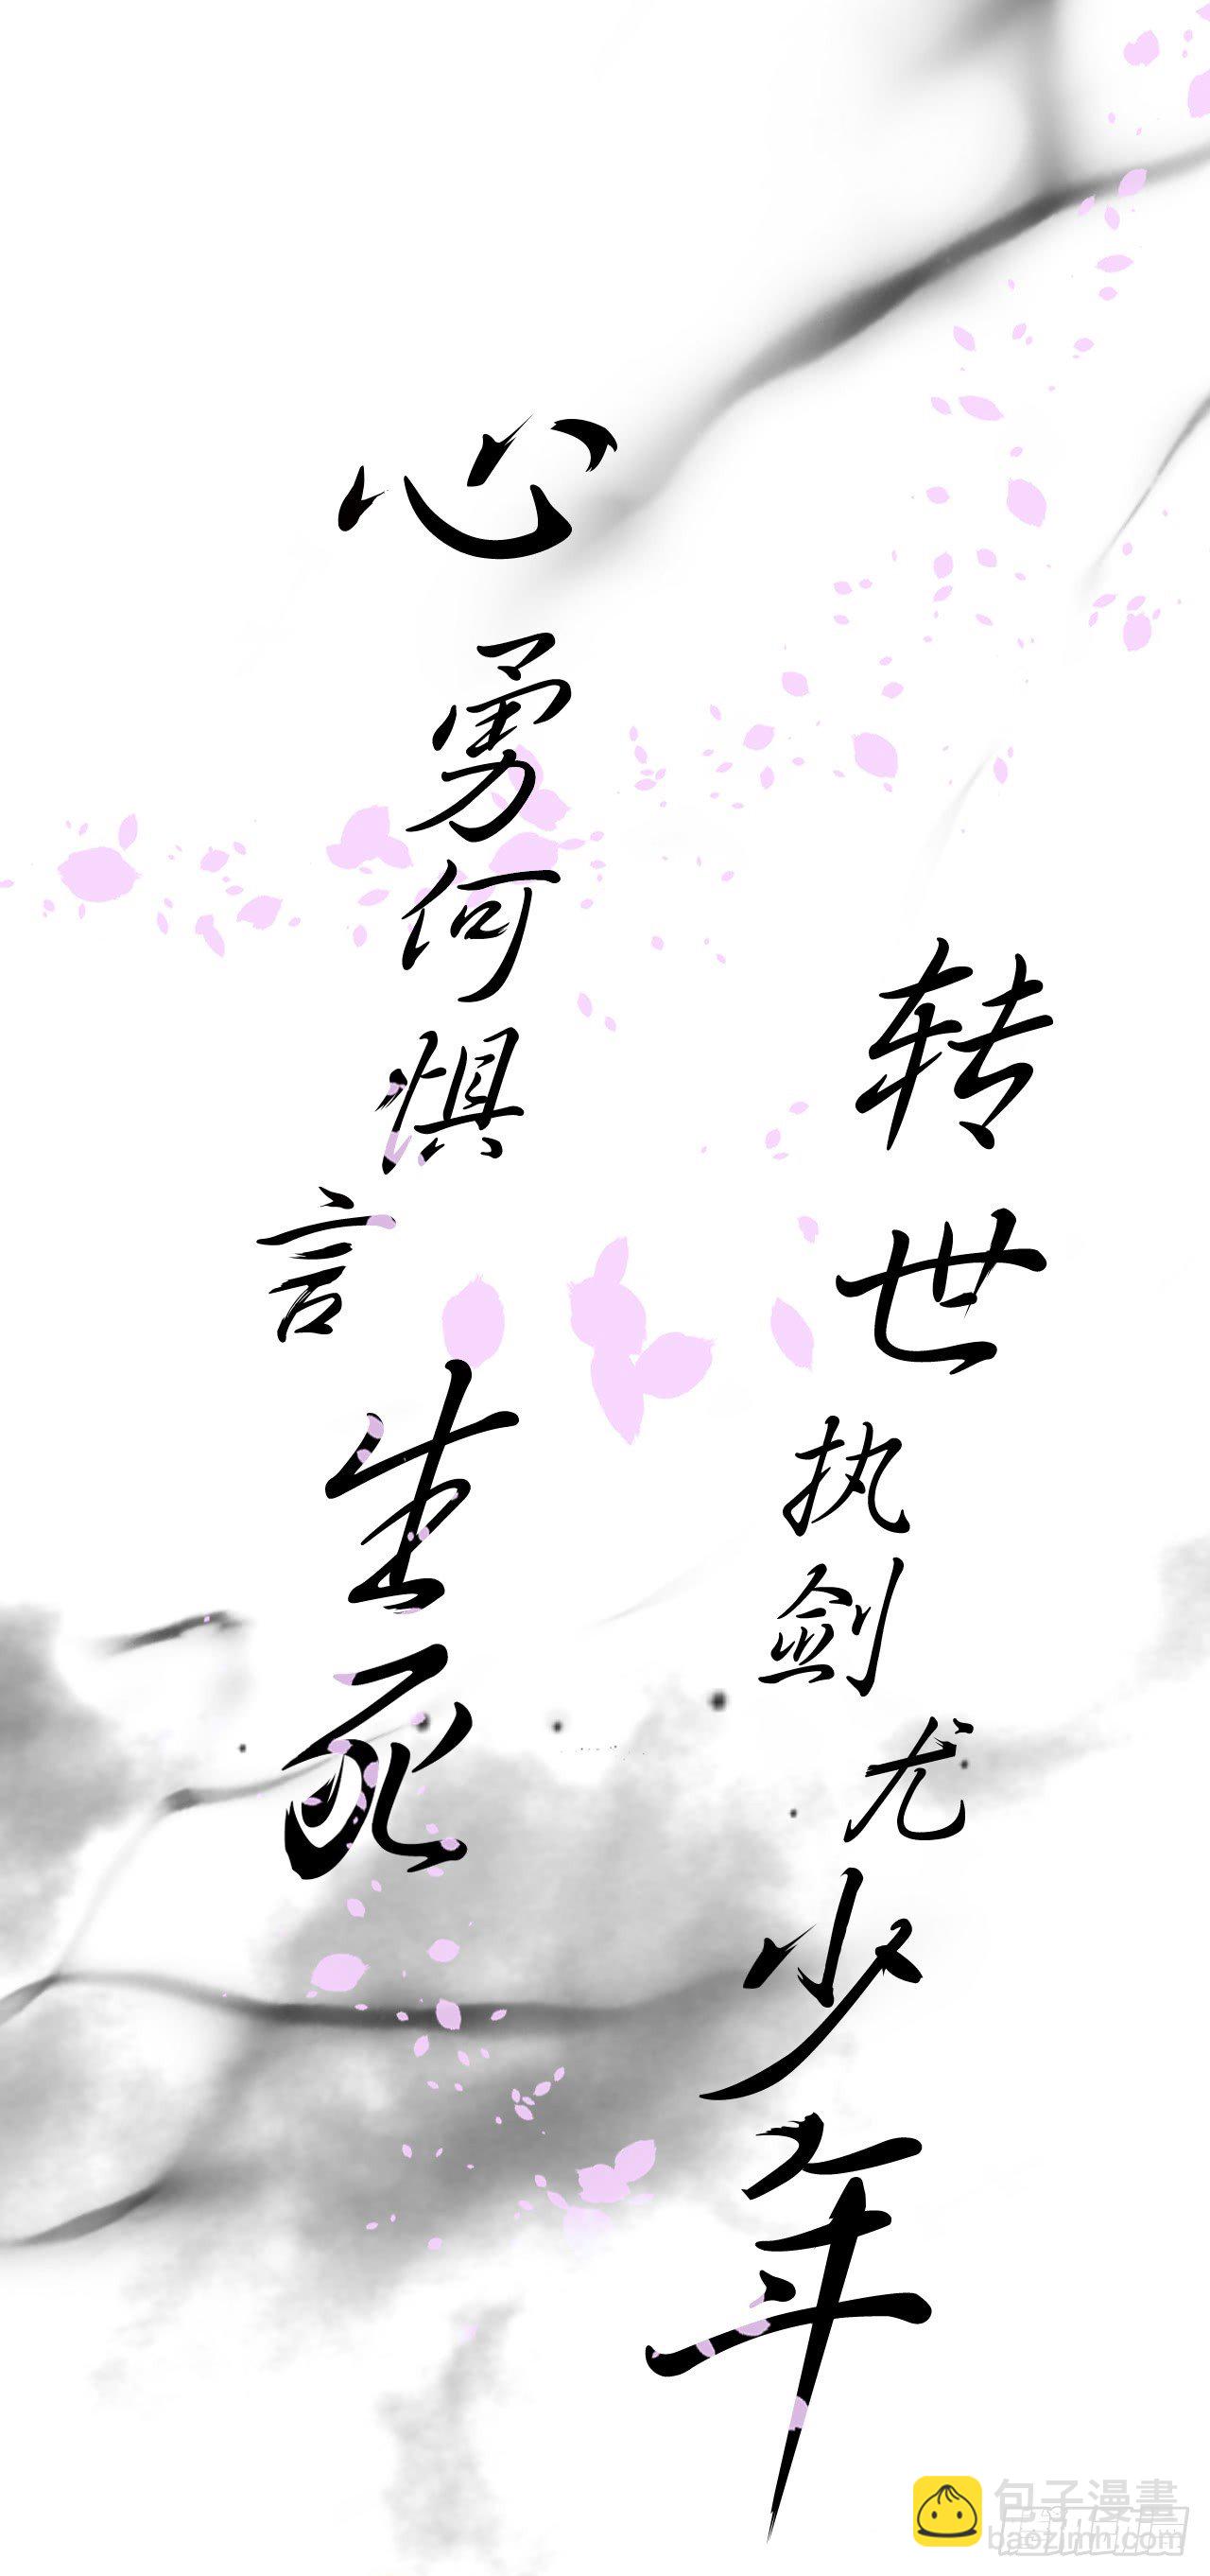 转世执剑尤少年
心勇何惧言生死
包子漫畫
baozimh.com